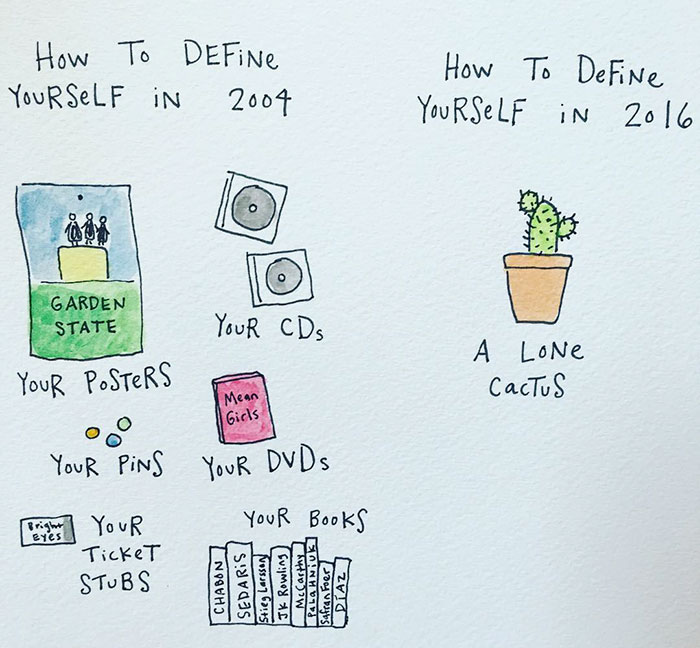 How To DEFiNe
YouRSeLF iN 2004
GARDEN
STATE
YouR PoSTeRS
YouR CDs
YouR PiNS
Mean
Girls
YouR DVDs
Bright
EYES
YouR
TickeT
STuBS
YouR BooKS
CHABON
SEDARiS
Stieg Larsson
JK Rowling
McCarthy
PaLaHNiUK
SafranFoer
DiAZ
How To DeFiNe
YouRSeLF iN 2016
A LoNe
CacTuS